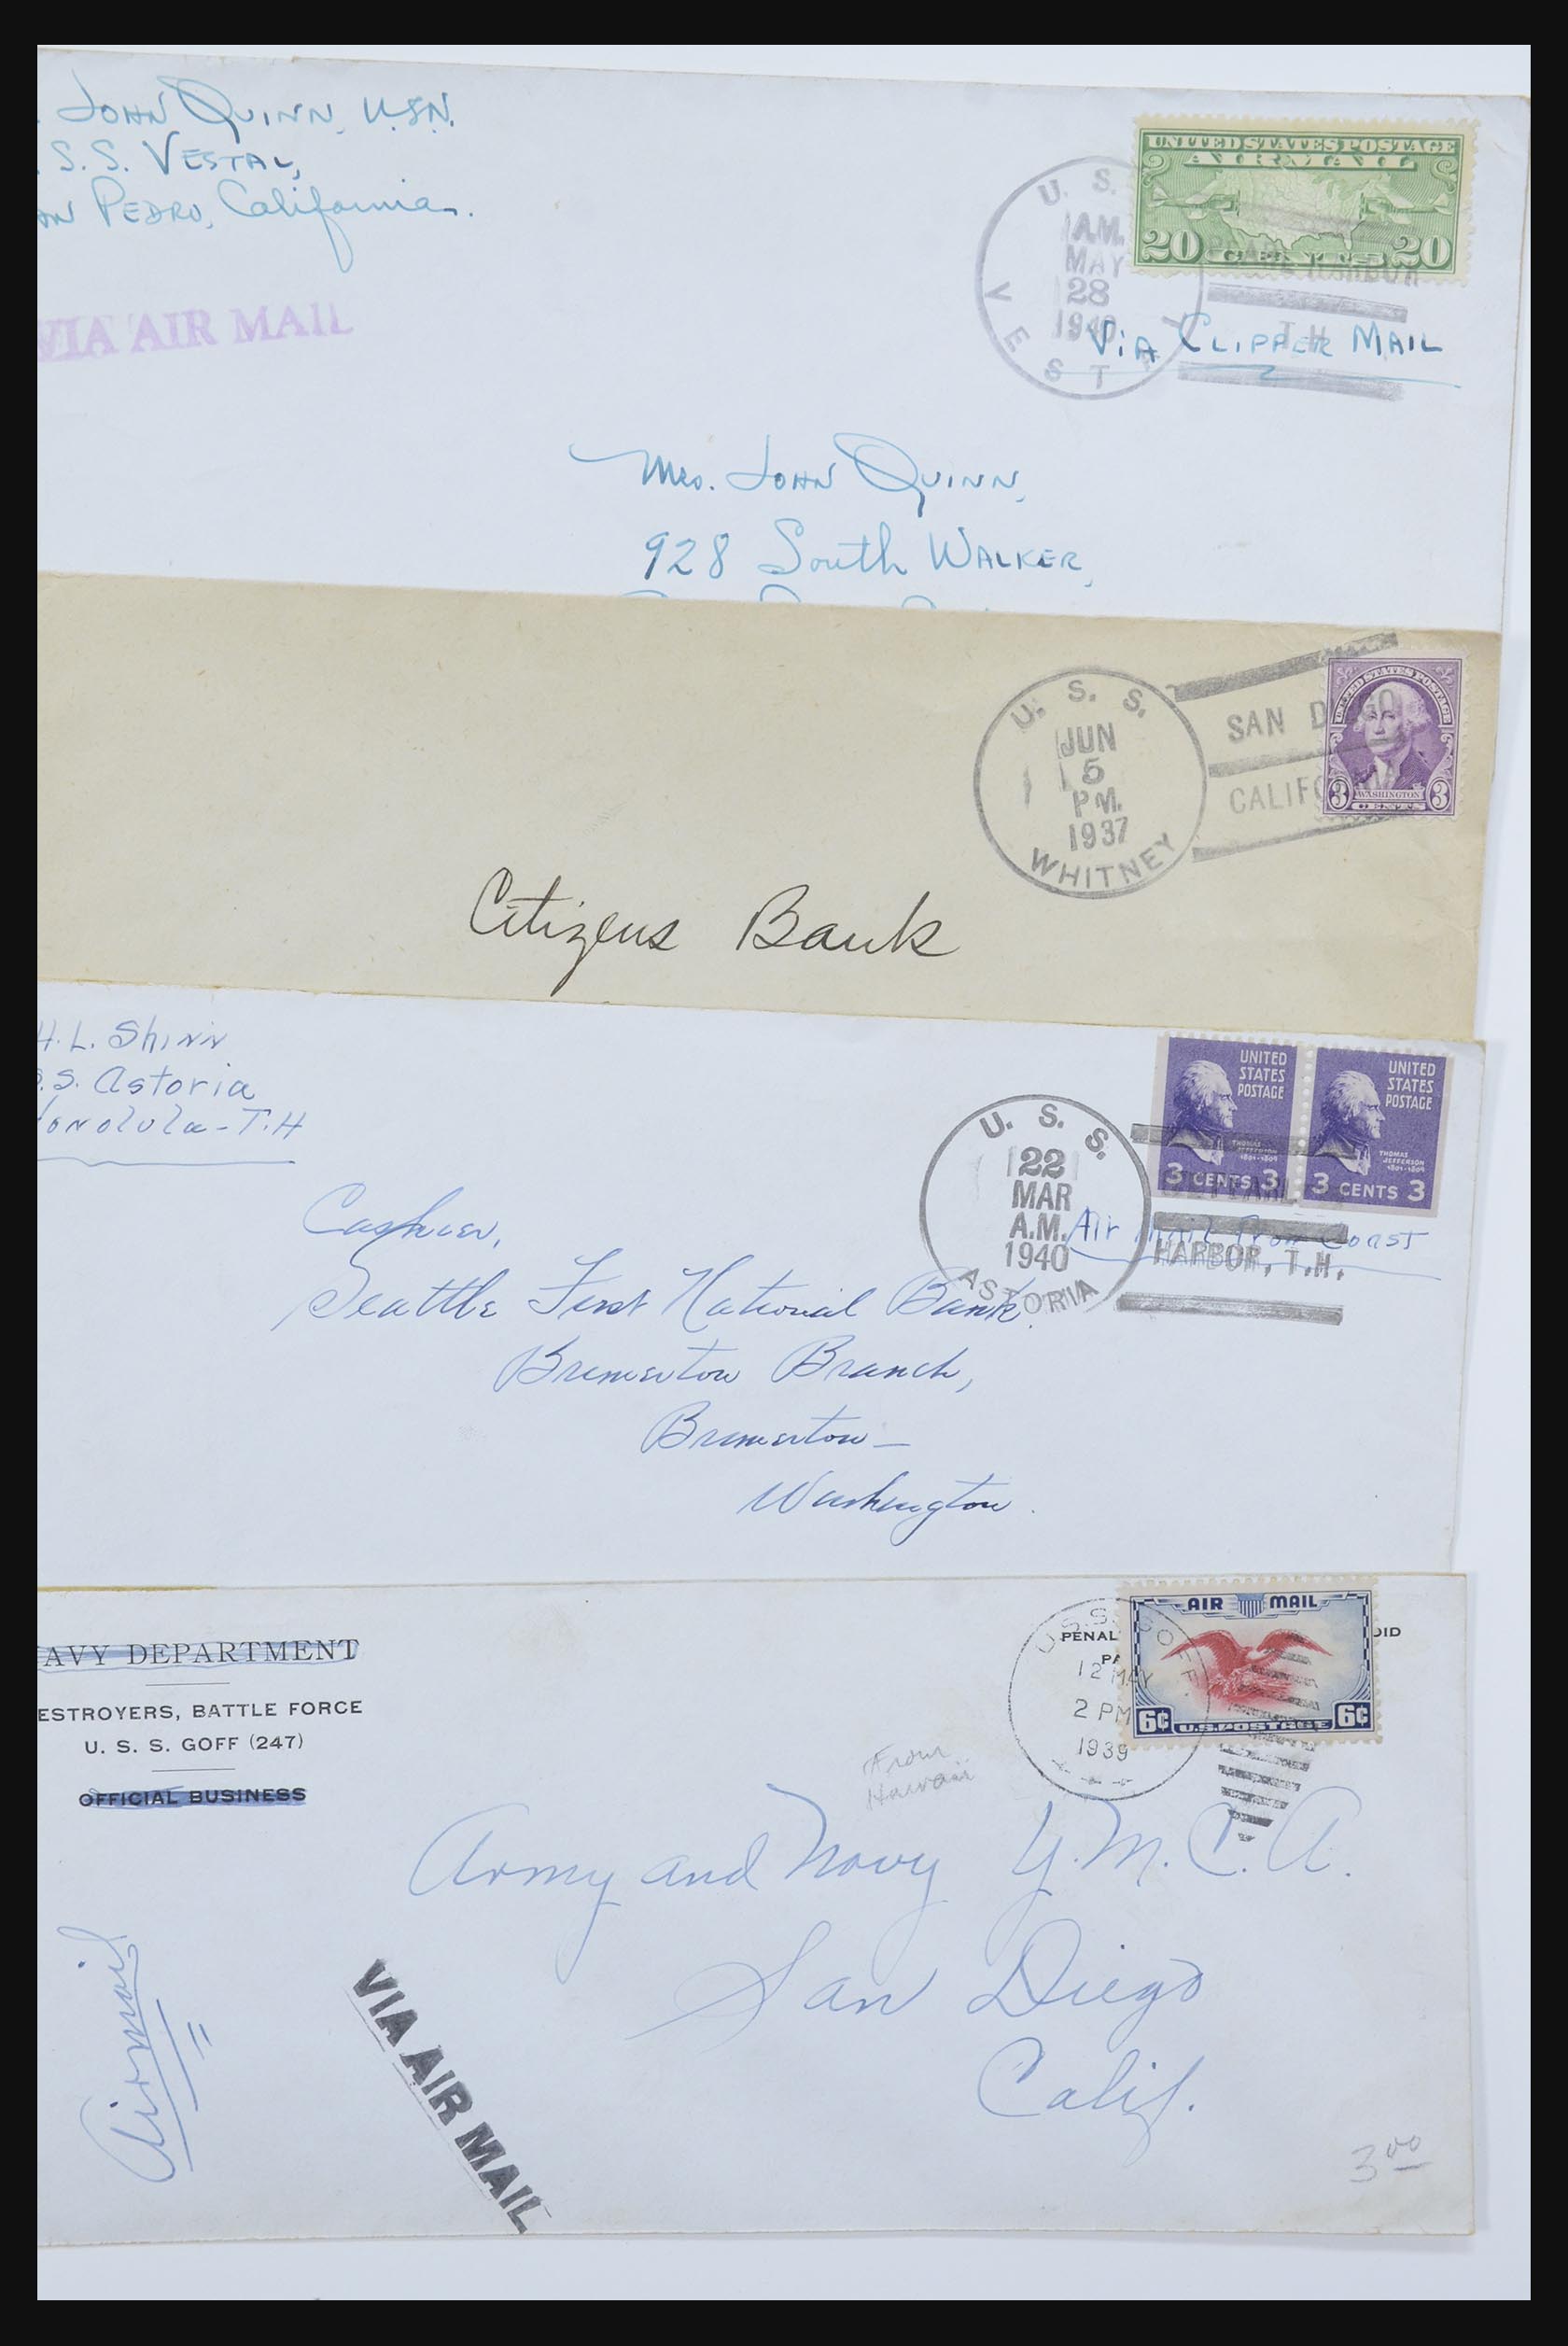 . John Quinn, U.S.N.
. S. S. Vestal,
an Pedro, California.
VIA AIR MAIL
UNITED STATES POSTAGE
AIR MAIL
20 CENTS 20
U. S. S.
AM.
MAY
28
1940
VESTAL
PEARL HARBOR
T.H.
Via Clipper Mail
Mrs. John Quinn,
928 South Walker,
U. S. S.
JUN
5
PM.
1937
WHITNEY
SAN DIEGO
CALIFO
UNITED STATES POSTAGE
3 WASHINGTON 3
CENTS
Citizens Bank
H. L. Shinn
.S. Astoria
Honolulu - T.H
UNITED
STATES
POSTAGE
THOMAS
JEFFERSON
1801-1809
3 CENTS 3
UNITED
STATES
POSTAGE
THOMAS
JEFFERSON
1801-1809
3 CENTS 3
U. S. S.
22
MAR
A.M.
1940
ASTORIA
PEARL
HARBOR, T.H.
Air Mail From Coast
Cashier,
Seattle First National Bank.
Bremerton Branch,
Bremerton –
Washington.
AVY DEPARTMENT
ESTROYERS, BATTLE FORCE
U. S. S. GOFF (247)
OFFICIAL BUSINESS
PENAL
OID
PA
AIR MAIL
6¢ U.S. POSTAGE 6¢
U.S.S. GOFF
12 MAY
2 PM
1939
From
Hawaii
Army and Navy Y.M.C.A.
San Diego
Calif.
Airmail
VIA AIR MAIL
3 00